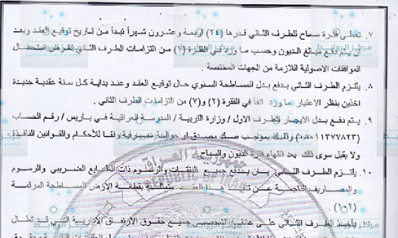 ٧. تعطى فترة سماح للطرف الثاني قدرها (٢٤) اربعة وعشرون شهراً تبدأ من تاريخ توقيع العقد وبعد
دفع مبالغ الديون وحسب ما ورد في الفقرة (٦) من التزامات الطرف الثاني لغرض استحصال
الموافقات الاصولية اللازمة من الجهات المختصة
٨. يلتزم الطرف الثاني بدفع بدل المساطحة السنوي حال توقيع العقد وعند بداية كل سنة عقدية جديدة
اخذين بنظر الاعتبار ما ورد انفاً في الفقرة (٦) و(٧) من التزامات الطرف الثاني .
٩. يلتزم بدفع بدل الايجار للطرف الاول / وزارة التربية / المدرسة العراقية في باريس / رقم الحساب
وذلك بموجب صك مصدق او حوالة مصرفية وفقا للأحكام والقوانين النافذة
ولا يقبل سوى ذلك بعد انتهاء فترة الديون والسماح .
١٠. يلتزم الطرف الثاني بأن يدفع جميع النفقات والرسوم ذات الطابع الضريبي والرسوم
والمصاريف الناجمة عن هذا العقد متمثلة بقطعة الأرض المساطحة المرقمة
(١٠٦) .
الطرف الثاني على عاتقه جميع حقوق الارتفاق